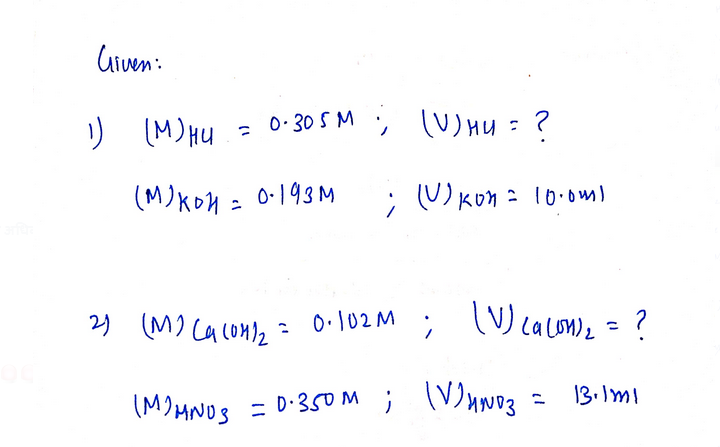 Given:
1) (M)HCl = 0.305M ; (V)HCl = ?
(M)KOH = 0.193M ; (V)KOH = 10.0ml
2) (M)Ca(OH)2 = 0.102M ; (V)Ca(OH)2 = ?
(M)HNO3 = 0.350M ; (V)HNO3 = 13.1ml